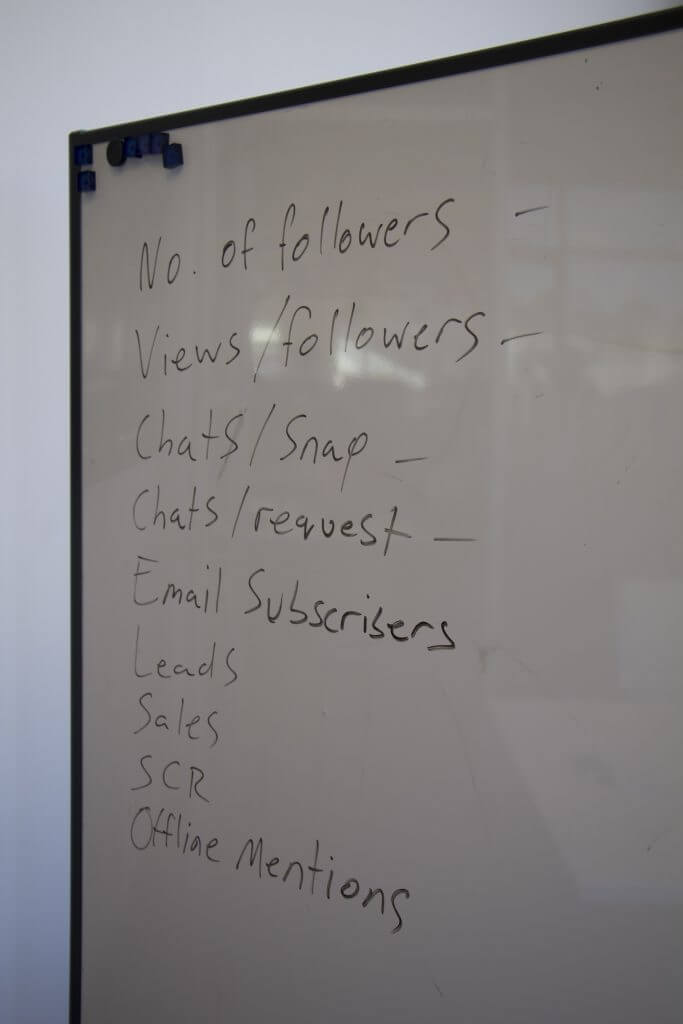 No. of followers -
Views/followers -
Chats/Snap -
Chats/request -
Email Subscribers
Leads
Sales
SCR
Offline Mentions